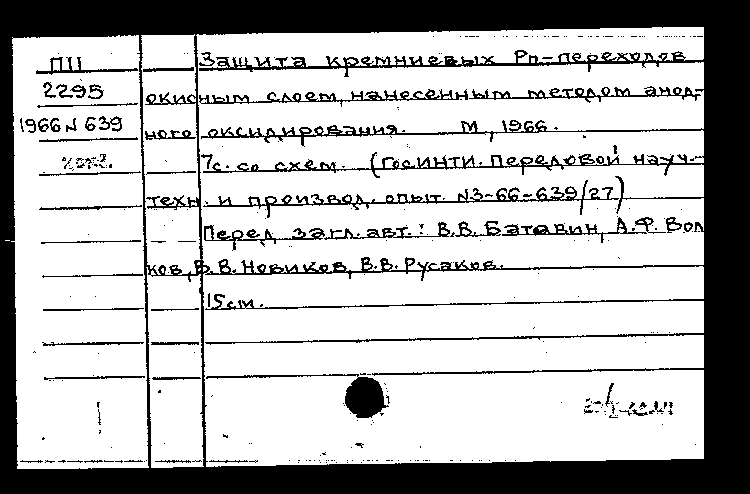 ПII Защита кремниевых Pn-переходов
2295 окисным слоем, нанесенным методом анод-
1966 N 639 ного оксидирования. М, 1966.
7с. со схем. (ГОСИНТИ. Передовой науч.-
техн. и производ. опыт. N3-66-639/27)
Перед загл. авт.: В.В. Батавин, А.Ф. Вол
ков, В.В. Новиков, В.В. Русаков.
15см.